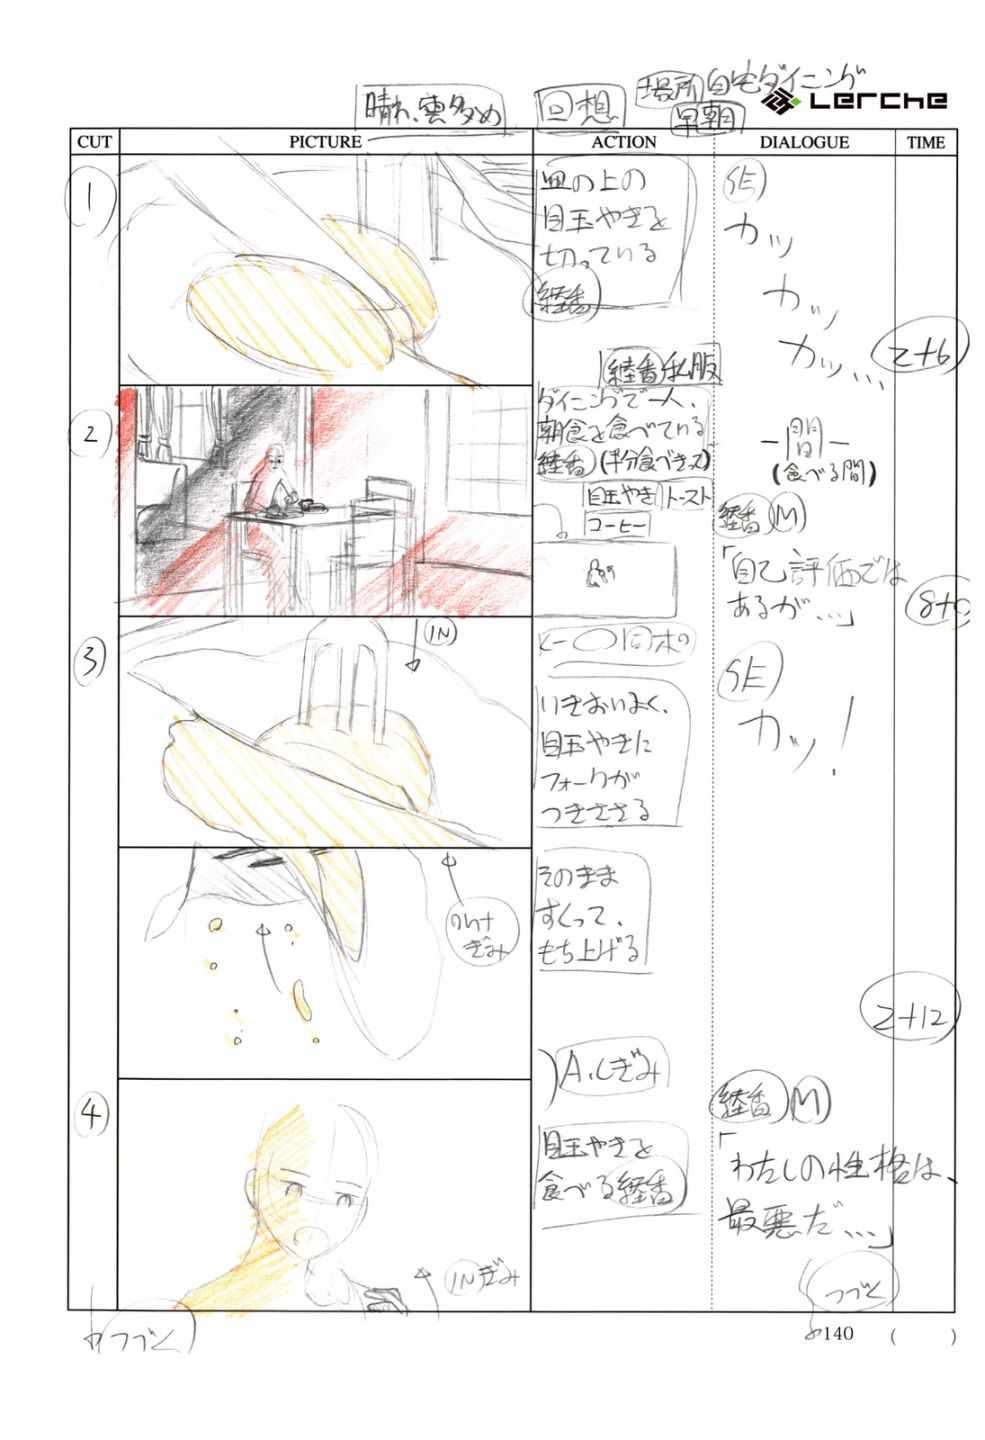 場所 自宅ダイニング
晴れ、雲多め
回想
早朝
Lerche
CUT
PICTURE
ACTION
DIALOGUE
TIME
1
皿の上の
目玉やきを
切っている
綾香
SE
カッ
カッ
カッ...
2+6
綾香 私服
2
ダイニングで一人、
朝食を食べている
綾香(半分食べきっズ)
目玉やき トースト
コーヒー
一間一
(食べる間)
綾香 M
「自己評価では
あるが...」
8+0
3
IN
同ポの
いきおいよく、
目玉やきに
フォークが
つきささる
SE
カッ!
outぎみ
そのまま
すくって、
もち上げる
2+12
A.Cぎみ
4
INぎみ
目玉やきを
食べる綾香
綾香 M
「わたしの性格は、
最悪だ...」
つづく
つづく
140
( )